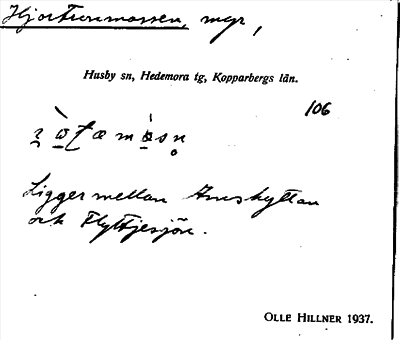 Hjortronmossen, myr,
Husby sn, Hedemora tg, Kopparbergs län.
106
Ligger mellan Amshyttan
och Flyttjesjön.
OLLE HILLNER 1937.